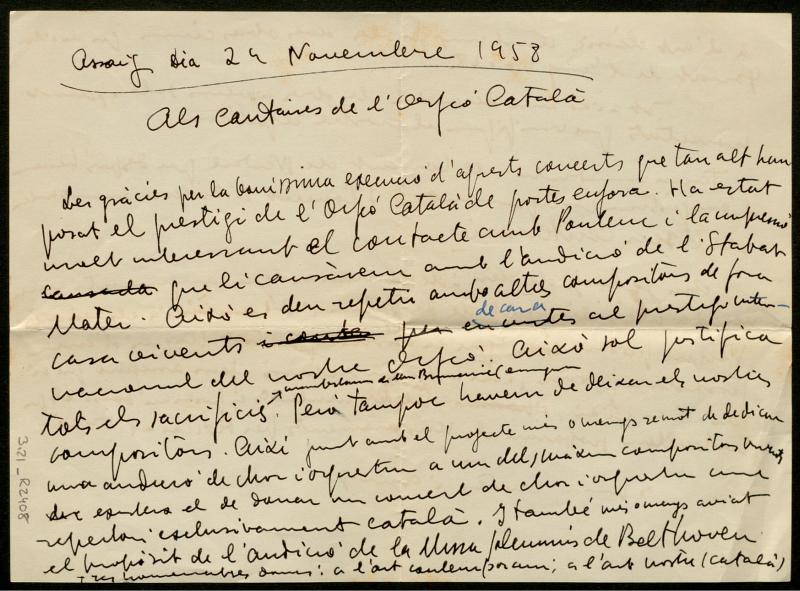 Assaig dia 24 Novembre 1958
Als cantaires de l'Orfeó Català
Les gràcies per la boníssima execució d'aquests concerts que tan alt han
posat el prestigi de l'Orfeó Català de portes enfora. Ha estat
molt interessant el contacte amb Poulenc i la impressió
causada que li causàrem amb l'audició de l'Stabat
Mater. Això es deu repetir amb altres compositors de fora
de cara
casa vivents per al prestigi inter-
nacional del nostre Orfeó. Això sol justifica
tots els sacrificis. Però tampoc havem de deixar els nostres
compositors. Així junt amb el projecte més o menys remot de dedicar
una audició de chor i orquestra a un dels màxims compositors vivents
el de donar un concert de chor i orquestra amb
repertori exclusivament català. I també més o menys aviat
el propòsit de l'audició de la Missa solemnis de Beethoven
Tres homenatges doncs: a l'art contemporani; a l'art nostre (català)
3.21_R2408